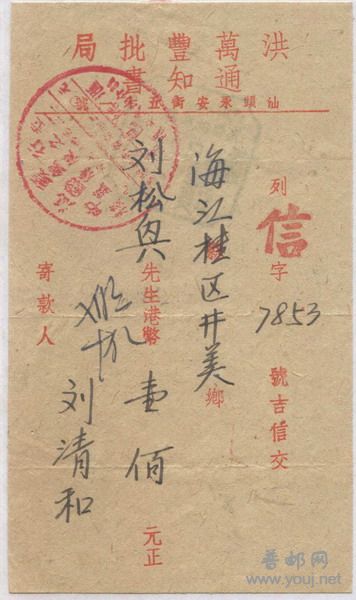 洪萬豐批局
通知書
汕頭永安街
列 信 字 7853 號吉信交
海江桂区井美鄉
刘松典 先生港幣 壹佰 元正
寄款人 刘清和
普邮网
www.youj.net